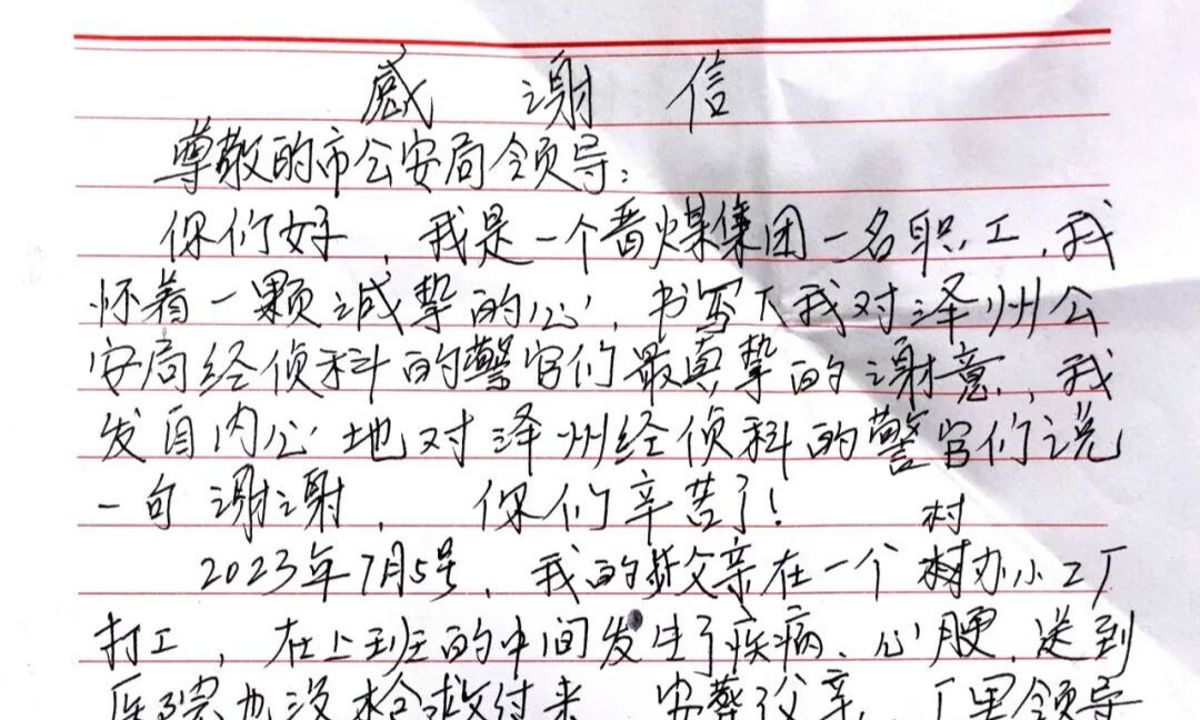 感谢信
尊敬的市公安局领导：
你们好，我是一个晋煤集团一名职工，我
怀着一颗诚挚的心，书写下我对泽州公
安局经侦科的警官们最真挚的谢意，我
发自内心地对泽州经侦科的警官们说
一句谢谢，你们辛苦了！
村
2023年7月5号，我的父亲在一个办小工厂
打工，在上班的中间发生了疾病、心梗，送到
医院也没抢救过来，安葬了父亲，厂里领导